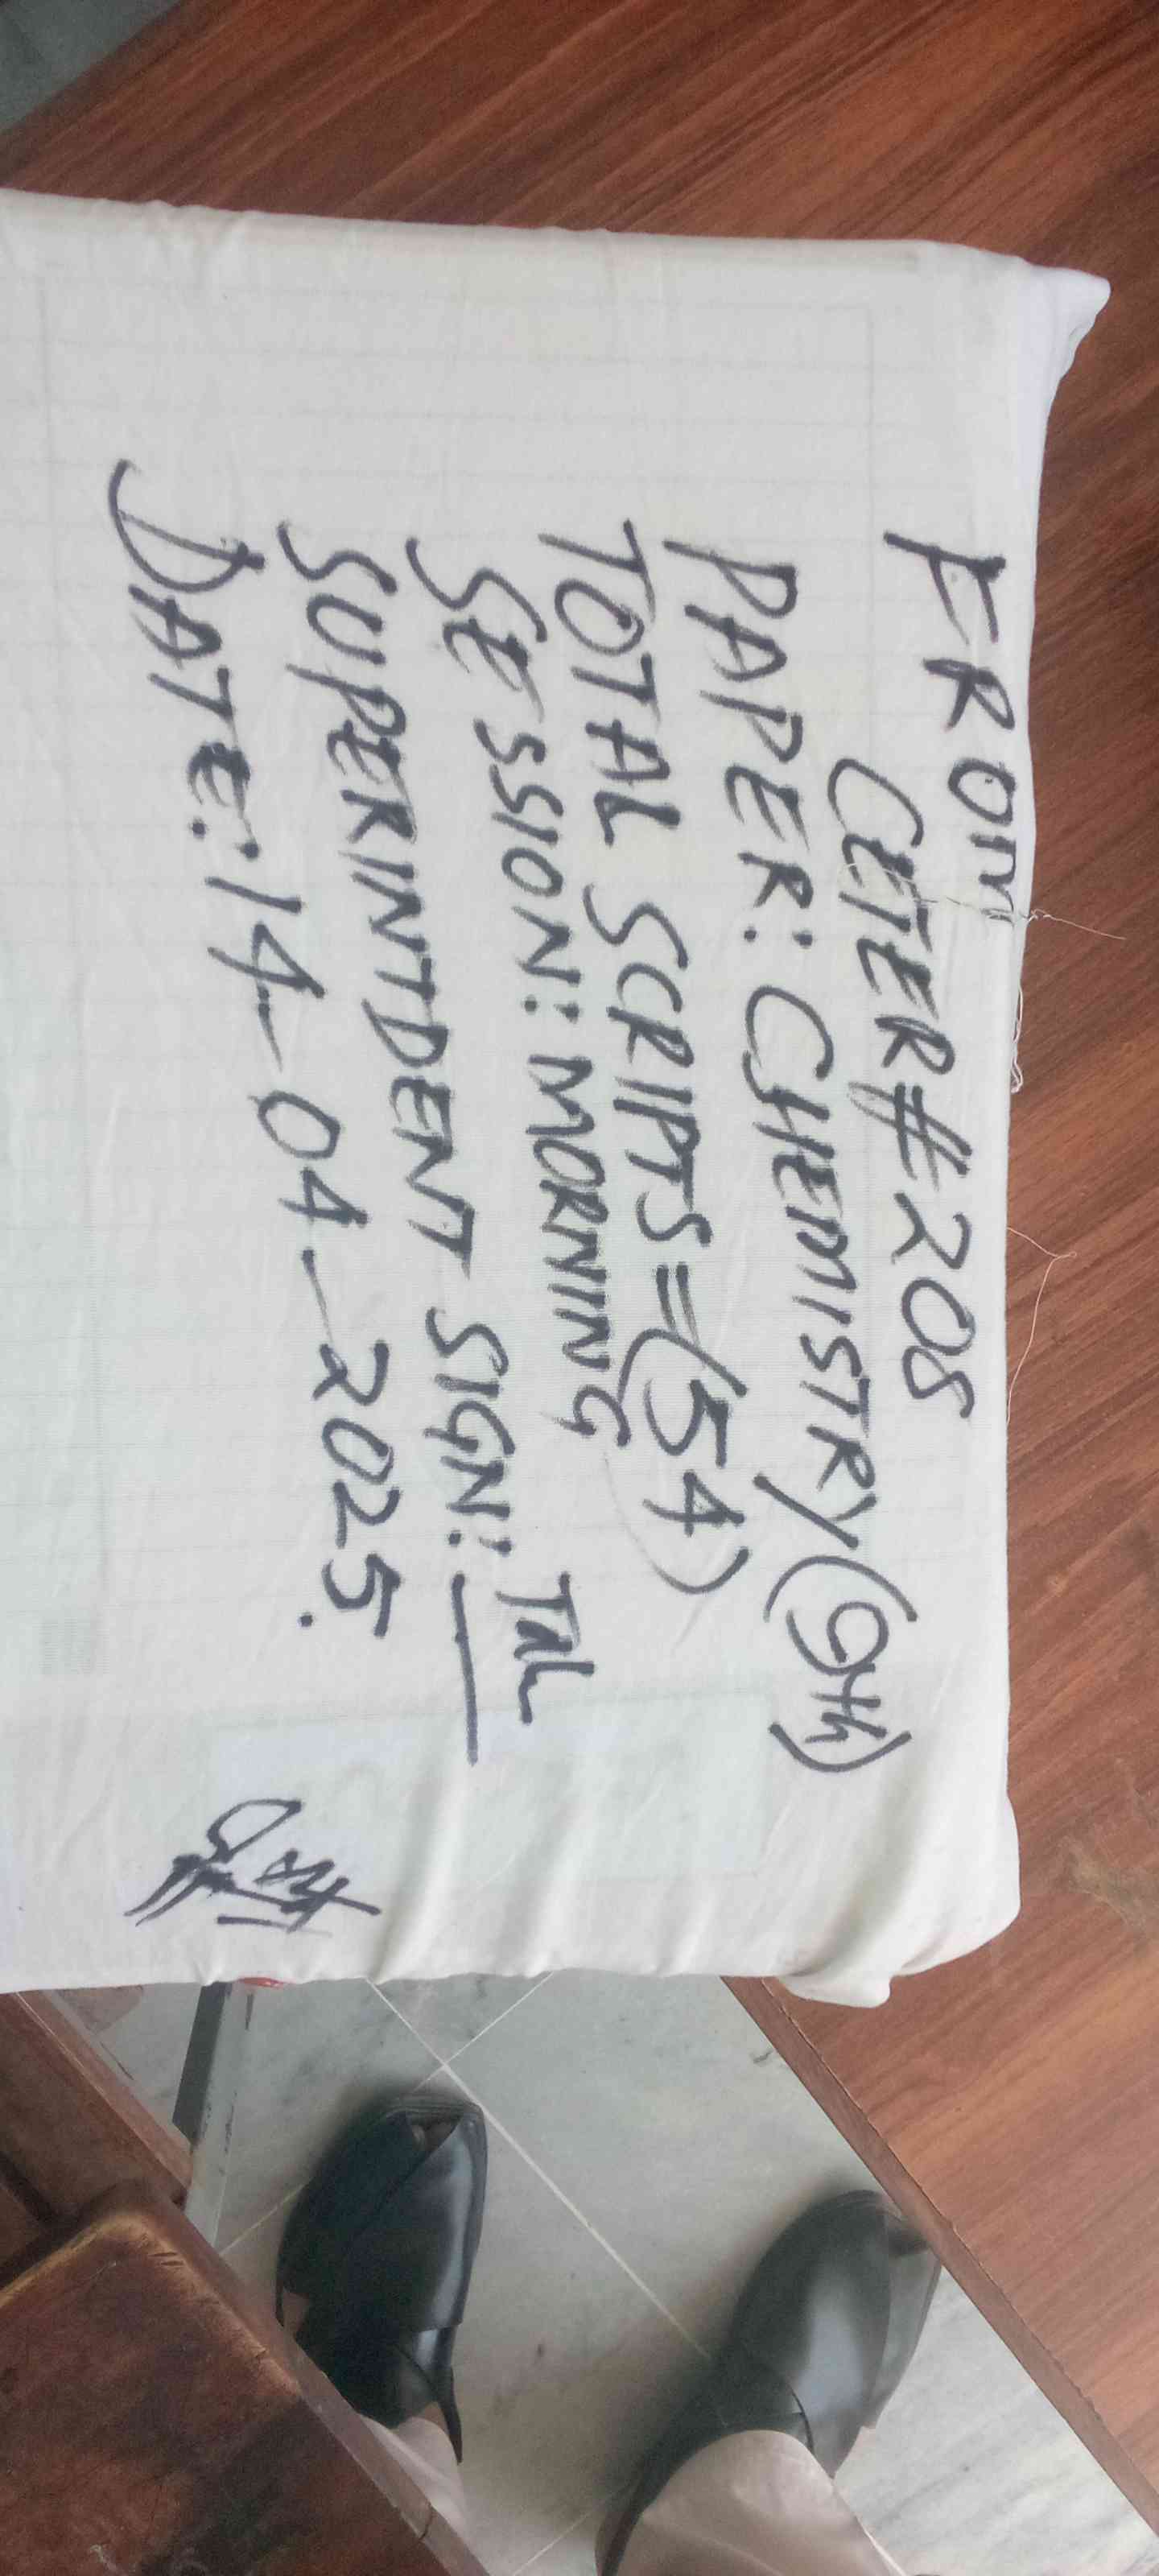 FROM
CETER # 208
PAPER: CHEMISTRY (9th)
TOTAL SCRIPTS = (54)
SESSION: MORNING
SUPERINTDENT SIGN:
DATE: 14-04-2025.